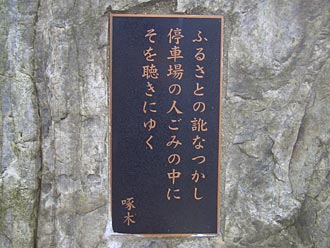 ふるさとの訛なつかし
停車場の人ごみの中に
そを聴きにゆく
啄木